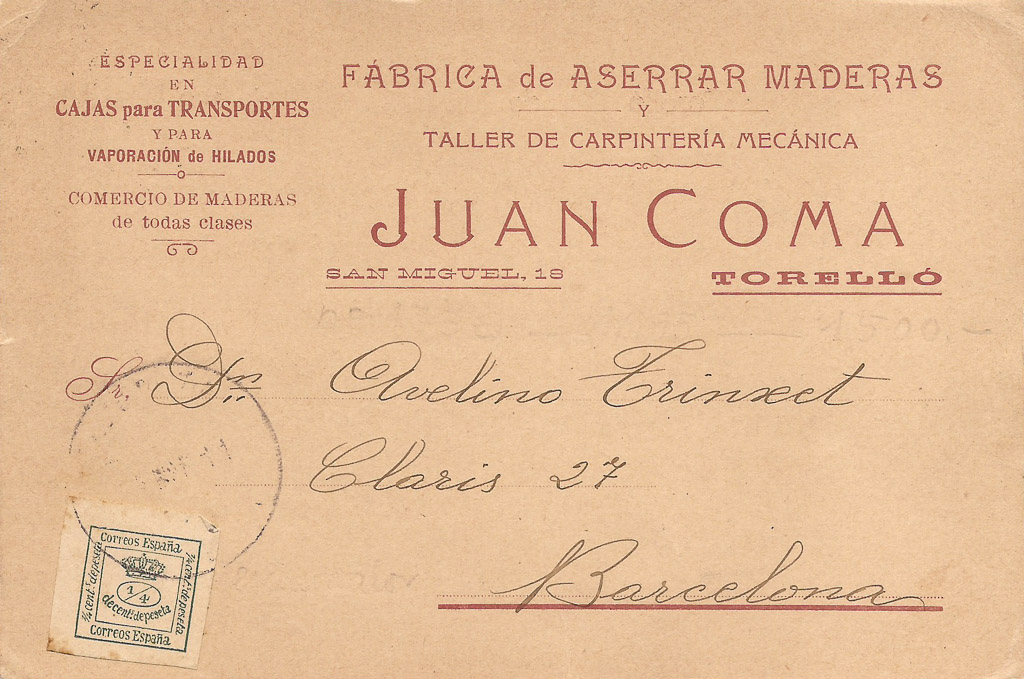 ESPECIALIDAD
EN
CAJAS para TRANSPORTES
Y PARA
VAPORACIÓN de HILADOS
COMERCIO DE MADERAS
de todas clases
FÁBRICA de ASERRAR MADERAS
Y
TALLER DE CARPINTERÍA MECÁNICA
JUAN COMA
SAN MIGUEL, 18
TORELLÓ
1500.-
Sr. Dn. Avelino Trinxet
Claris 27
Barcelona
CORREOS ESPAÑA
¼ cent. de peseta
¼ cent. de peseta
1/4
de cent. de peseta
CORREOS ESPAÑA